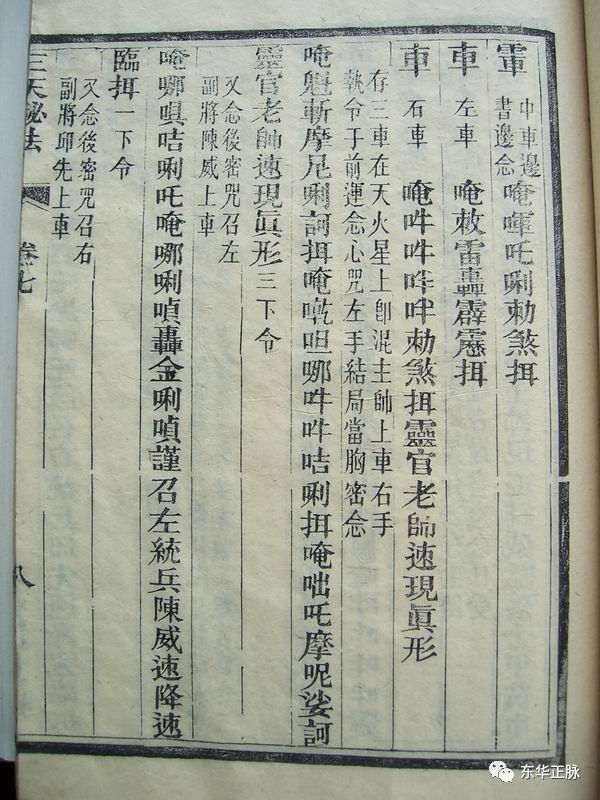 中車邊
書邊念
唵㖶吒唎勅煞揖
車 左車 唵敕雷轟霹靂揖
車 右車 唵吽吽吽吽勅煞揖靈官老師速現眞形
存三車在天火星上卽混主師上車右手
執令于前運念心咒左手結局當胸密念
唵魁斬摩尼唎訶揖唵吽吽咭唎揖唵咄吒摩呢娑訶
靈官老師速現眞形三下令
又念後密咒召左
副將陳威上車
唵哪嗔咭唎吒唵哪唎嗔轟金唎嗔謹召左統兵陳威速降速
臨揖一下令
又念後密咒召右
副將邱先上車
三天秘法 卷七 八
东华正脉